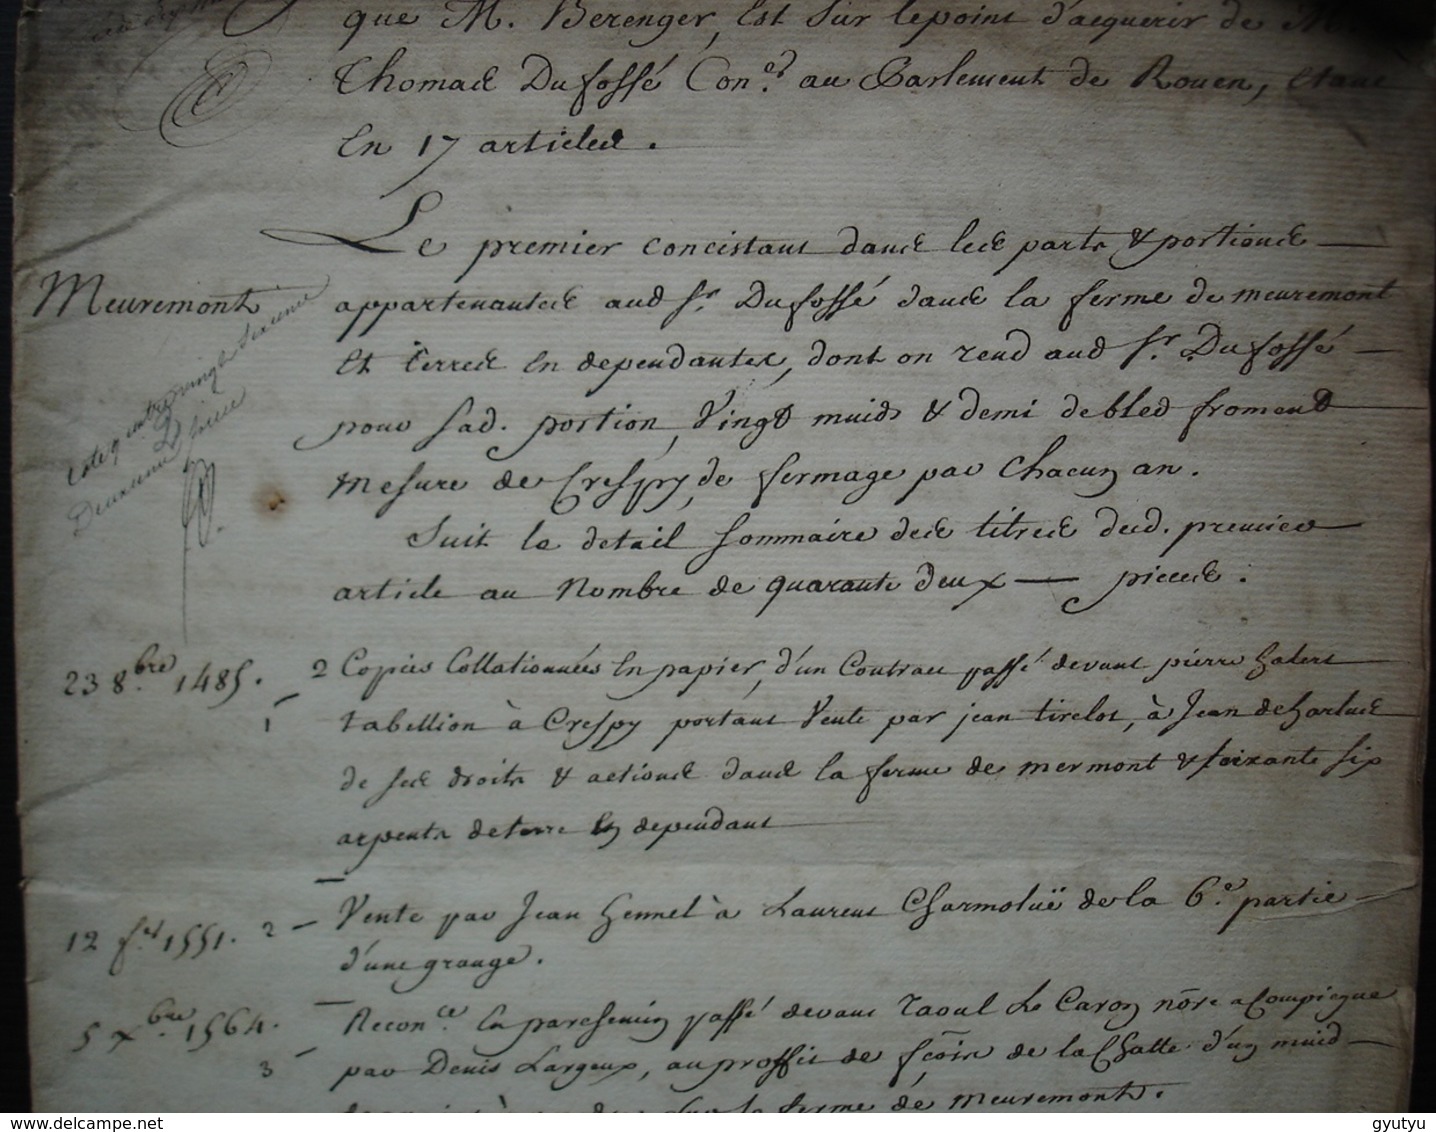 que M. Berenger, Est Sur lepoint d'acquerir de M.
Thomas Du fossé Con.er au Parlement de Rouen, Etant
En 17 articles.
Le premier concistant dans les parts & portions
Meuremont
appartenantes aud Sr. Du fossé dans la ferme de meuremont
Et terres En dependantes, dont on rend aud Sr. Du fossé
pour Sad. portion, Vingt muids & demi debled froment
Mesure de Crespy, de fermage par Chacun an.
Cote quatre vingt Seizieme
Deuxieme
Suit le detail Sommaire des titres dud. premier
article au Nombre de quarante deux — pieces.
23 8.bre 1485.
1
2 Copies Collationnées En papier, d'un Contract passé devant pierre
tabellion à Crespy portant Vente par jean tirelot, à Jean deharlus
de ses droits & actions dans la ferme de mermont & soixante six
arpents deterre En dependant
12 f.er 1551. 2 — Vente par Jean hennel à Laurent Charmoluë dela 6.e partie
d'une grange.
5 x.bre 1564.
3
Recon.ce En parchemin passé devant raoul Le Caron nõre a Compiegne
par Denis Largeux, au proffit de fcõis de la Chatte d'un muid
Sur la ferme de meuremont.
gyutyu